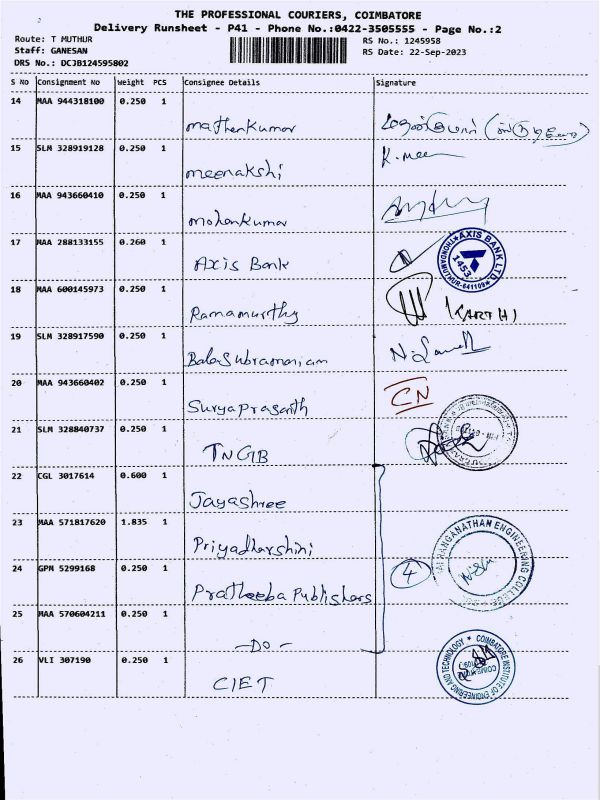 THE PROFESSIONAL COURIERS, COIMBATORE
Delivery Runsheet - P41 - Phone No.:0422-3505555 - Page No.:2
Route: T MUTHUR
RS No.: 1245958
Staff: GANESAN
RS Date: 22-Sep-2023
DRS No.: DCJB124595802
S No Consignment No Weight PCS Consignee Details Signature
14 MAA 944318100 0.250 1 Mathankumar
15 SLM 328919128 0.250 1 meenakshi K.mee
16 MAA 943660410 0.250 1 mohankumar
17 MAA 288133155 0.260 1 Axis Bank
AXIS BANK LTD
1453
THONDAMUTHUR-641109
18 MAA 600145973 0.250 1 Ramamurthy (KARTHI)
19 SLM 328917590 0.250 1 Balasubramaniam
20 MAA 943660402 0.250 1 Suryaprasanth CN
21 SLM 328840737 0.250 1 TNGB
22 CGL 3017614 0.600 1 Jayashree
23 MAA 571817620 1.835 1 Priyadharshini
24 GPM 5299168 0.250 1 Pratheeba Publishers 4
RANGANATHAN ENGINEERING COLLEGE
25 MAA 570604211 0.250 1 - DO -
26 VLI 307190 0.250 1 CIET
COIMBATORE INSTITUTE OF ENGINEERING AND TECHNOLOGY